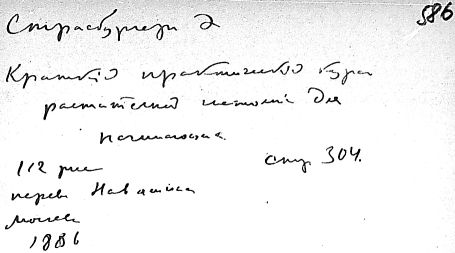 586
Страсбургер Э
Краткий практический курс
растительной гистологии для
начинающих
112 рис стр 304.
перев Навашина
Москва
1886